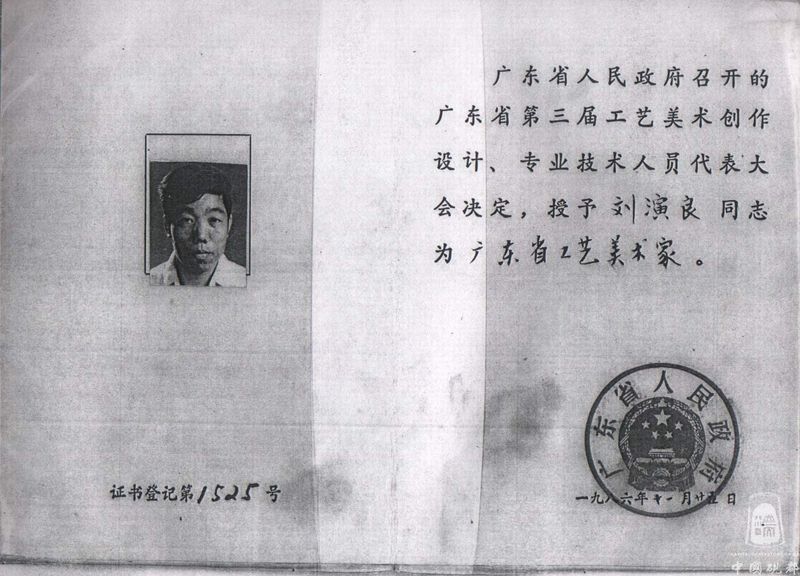 证书登记第1525号
广东省人民政府召开的
广东省第三届工艺美术创作
设计、专业技术人员代表大
会决定，授予刘演良同志
为广东省工艺美术家。
广东省人民政府
一九八六年十一月廿五日
中国砚都